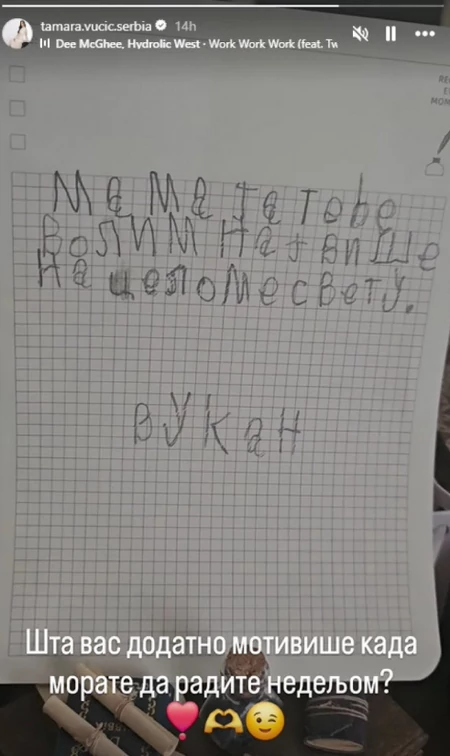 tamara.vucic.serbia 14h
Dee McGhee, Hydrolic West · Work Work Work (feat. Tw
МаМа ја тебе
ВоЛИМ НајвиШе
На целоМе свету.
вУКаН
Шта вас додатно мотивише када
морате да радите недељом?